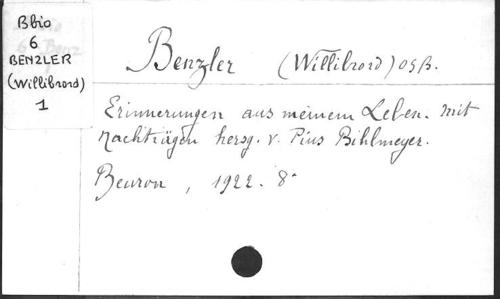 Bbio
6
BENZLER
(Willibrord)
1
Benzler (Willibrord) OSB.
Erinnerungen aus meinem Leben. Mit
Nachträgen hersg. v. Pius Bihlmeyer.
Beuron, 1922. 8°